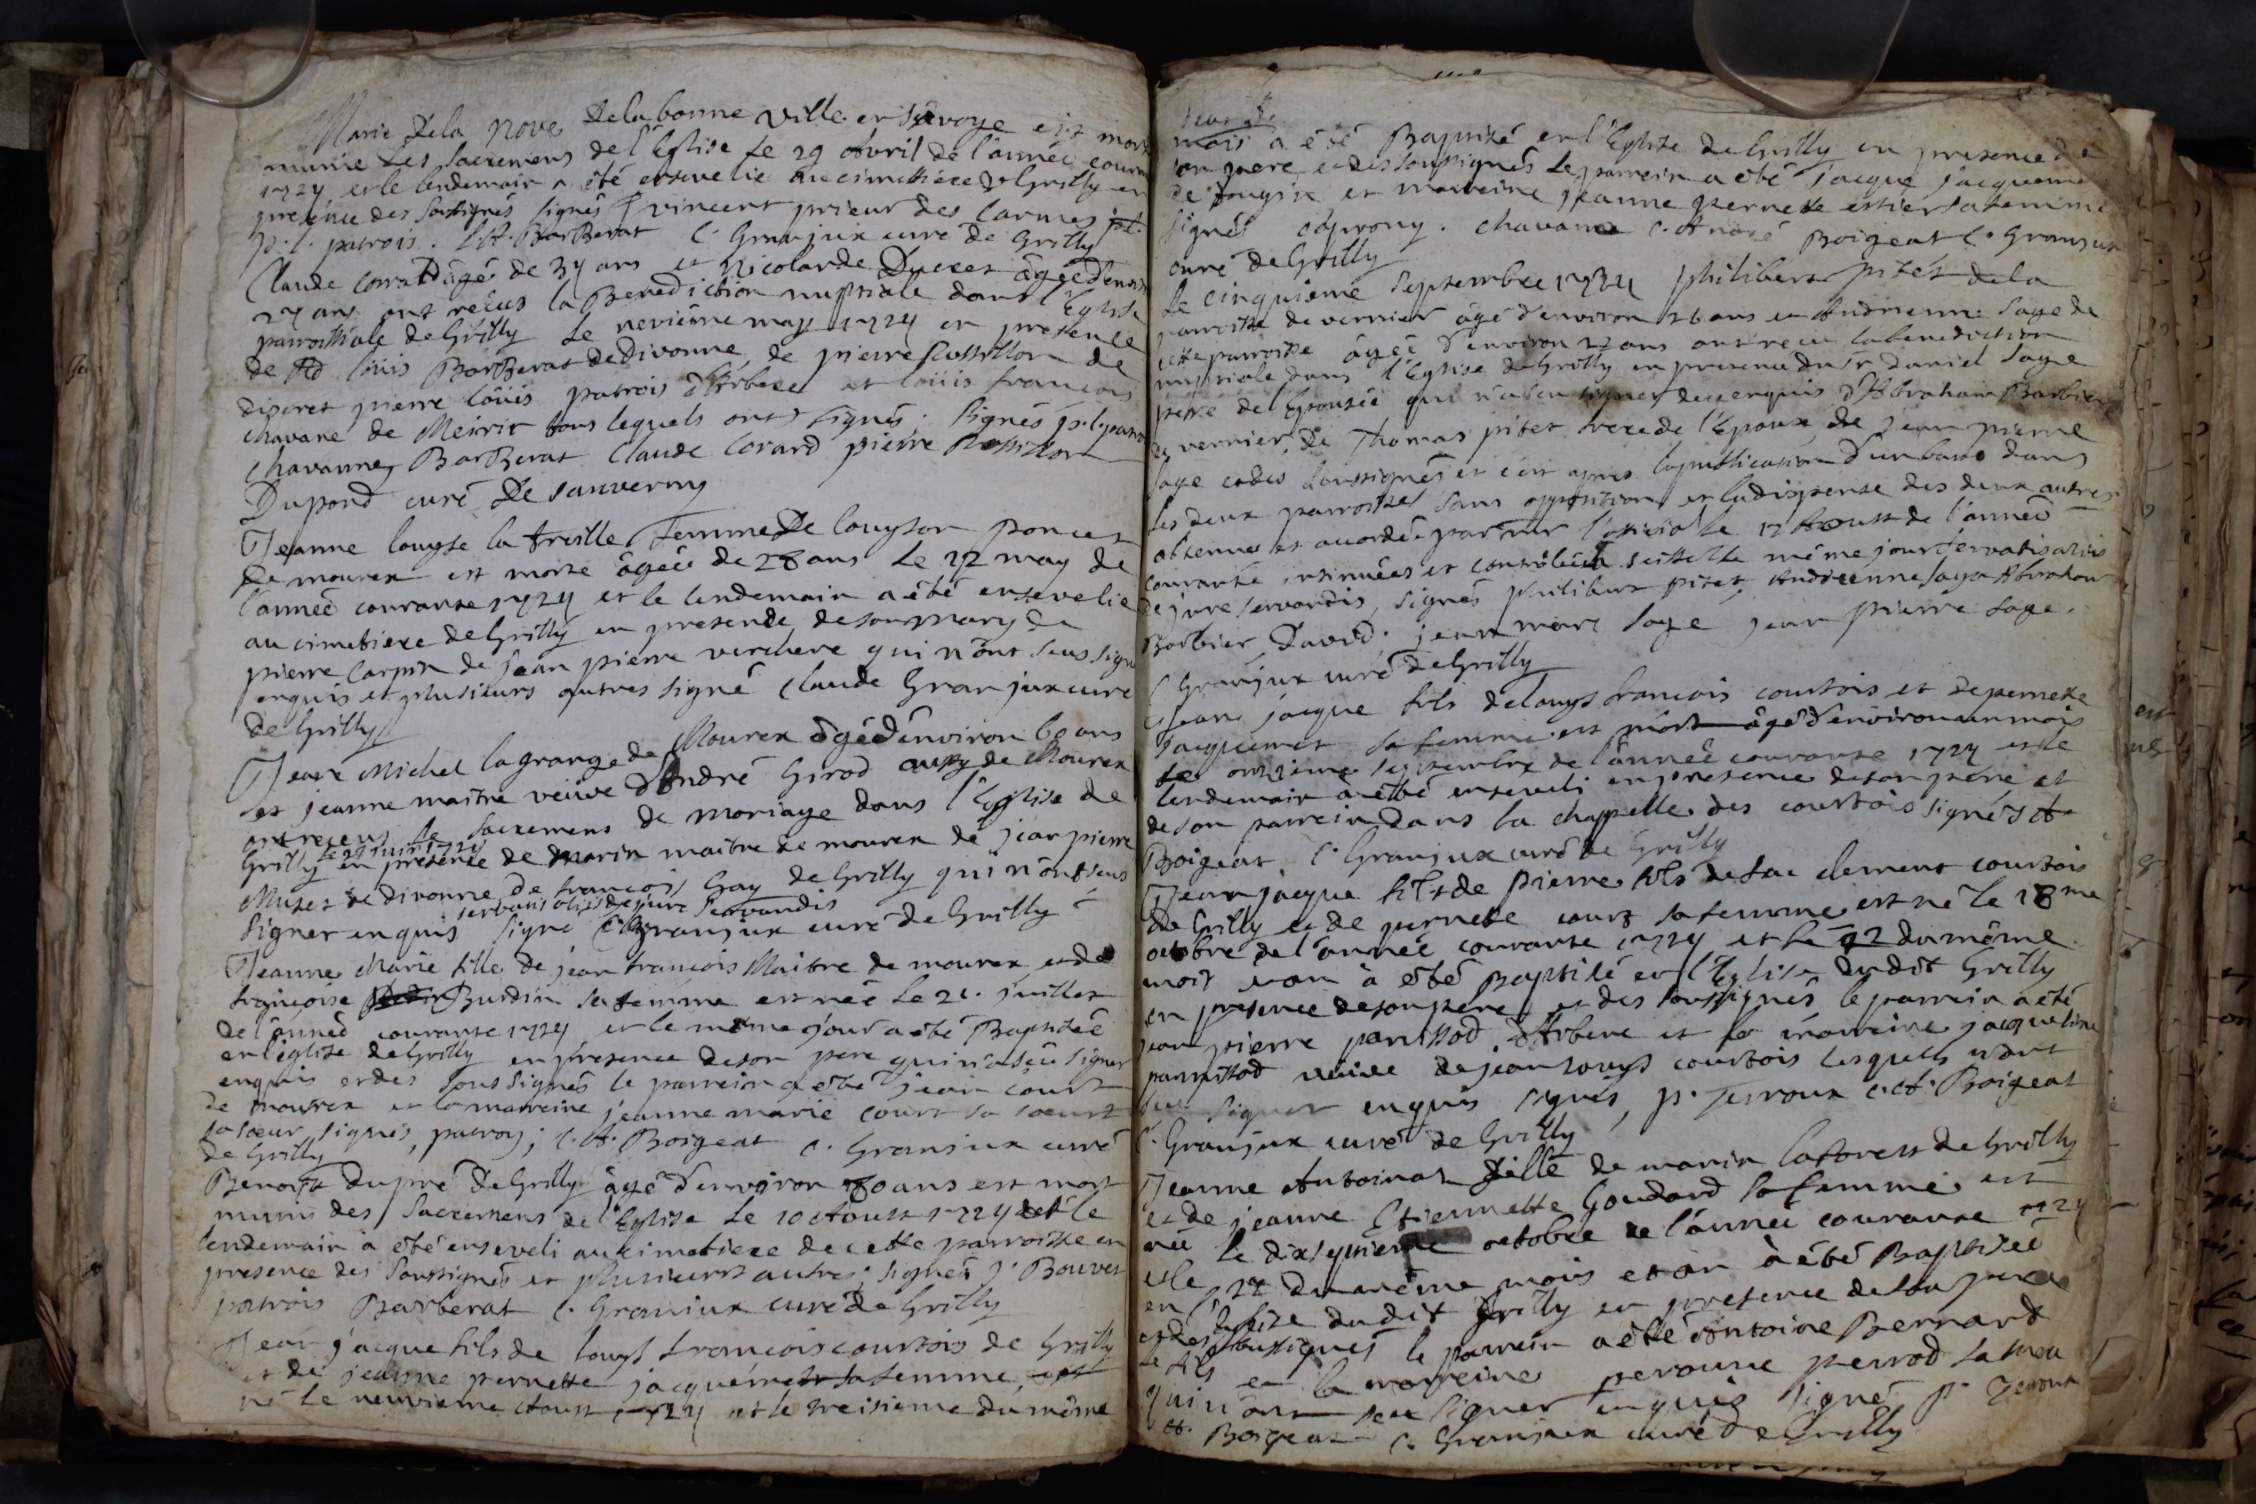 Marie Dela nove Dela bonne ville en Savoye est mor
munie des Sacremens de l'Eglise le 29 Avril de l'année couran
1724 et le lendemain a été ensevelie au cimetiere de Grilly en
presence des Soussignés signés f vincent prieur des Carmes
p. l. patrois. C. A. BarBerat C. Granjux curé de Grilly
Claude Corrad âgé de 34 ans et Nicolarde Ducret âgée d'envi
27 ans ont reçus la Benediction nuptiale dans l'Eglise
parroissiale de Grilly Le nevième may 1724 en presence
de loüis BarBerat de Divonne, de pierre Roussillon de
discret pierre loüis patrois d'Arbere et loüis francois
chavane de Meirir tous lequels ont signés. Signés p. l. patro
Chavanne, BarBerat Claude Corard pierre
Dupond curé De Sauverny
Jeanne louyse la treille Femme De louyson poncet
De mourex est morte âgée de 28 ans Le 22 may de
l'année courante 1724 et le lendemain a été ensevelie
au cimetiere de Grilly en presence de son mary de
pierre Carpin de Jean pierre verchere qui n'ont seus signe
enquis et plusieurs autres signé Claude Granjux curé
de Grilly
Jean Michel lagrange de Mourex âgé d'environ 60 ans
et jeanne maitre veüve d'André Girod aussy de Mourex
ont receus le Sacremens de mariage dans l'Eglise de
Grilly le 27 juin 1724 en presence de marin maitre de mourex de jean pierre
Musez de divonne de francois Gay de Grilly qui n'ont seus
Signer enquis servatis aliis de jure servandis Signé C. Granjux curé de Grilly
Jeanne Marie fille de jean francois Maitre de mourex et de
françoise Burdin sa femme est née le 21. juillet
de l'année courante 1724 et le même jour a été Baptisée
en l'église de Grilly en presence de son pere qui n'a sëu signer
enquis et des soussignés le parrein a été jean court
de mourex et la marreine jeanne marie court sa soeur
sa soeur signés, patroy; C. A. Boigeat C. Granjux curé
de Grilly
Benoit dupré de Grilly âgé d'environ 80 ans est mort
munis des Sacremens de l'Eglise Le 10 Aoust 1724 et le
lendemain a été enseveli au cimetiere de cette parroisse en
presence des Soussignés et plusieurs autres; signés J. Bouvet
patrois Barberat C. Granjux curé de Grilly
Jean jacque fils de louys francois courtois de Grilly
et de jeanne pernette jacquemet sa femme, est
né le neuvieme Aoust 1724 et le treisieme du même
mois a été Baptisé en l'Eglise de Grilly en presence de
son pere et des soussignés Le parrein a été jacque jacquemet
de et marreine jeanne pernette sa femme
signés . chavanne C. André Boigeat C. Granjux
curé de Grilly
Le cinquieme Septembre 1724 philibert pitet de la
parroisse de vernier âgé d'environ 26 ans et Andrienne Sage de
cette parroisse âgée d'environ 27 ans ont reçu la benediction
nuptiale dans l'Eglise de Grilly en presence du Sr Daniel Sage
pere de l'Epousée qui n'a seu signer de ce enquis d'Abraham Barbier
de vernier, de Thomas pitet frere de l'Epoux de Jean pierre
Sage et des soussignés et c'est apres la publication d'un banc dans
les deux parroisses sans opposition et la dispense des deux autres
obtenue et accordée par Mr l'official le 17 Aoust de l'année
courante insinuées et contrôlées le même jour servatis aliis
de jure servandis, signés philibert pitet, Andrienne Sage Abraham
Barbier, David. jean marc Sage jean pierre Sage.
C Granjux curé de Grilly
Jean jacque fils de louys francois courtois et de pernette
Jacquemet sa femme est mort âgé d'environ un mois
le onzieme septembre de l'année courante 1724 et le
lendemain a été enseveli en presence de son père et
de son parrein dans la chappelle des courtois signés A
Boigeat C. Granjux curé de Grilly
Jean jacque fils de Pierre fils de feu clement courtois
de Grilly et de pernette court sa femme est né le 18me
octobre de l'année courante 1724 et le 22 du même
mois et an à été Baptisé en l'Eglise dudit Grilly
en presence de son pere et des soussignés le parrein a été
jean pierre panissod d'Arbere et la marreine jacqueline
panissod veuve de jean louys courtois lesquels n'ont
seu signer enquis signés, p. Jerroux C. A. Boigeat
C. Granjux curé de Grilly
Jeanne Antoinat fille de marin laforest de Grilly
et de jeanne Etiennette Goudard sa femme est
née le dixseptieme octobre de l'année courante 1724
et le 22 du même mois et an à été Baptisée
en l'Eglise dudit Grilly en presence de son pere
et des soussignés le parrein a été Antoine Bernard
Le fils et la marreine peronne perrod sa
qui n'ont seu signer enquis Signé p. Jerroux
A. Boigeat C. Granjux curé de Grilly